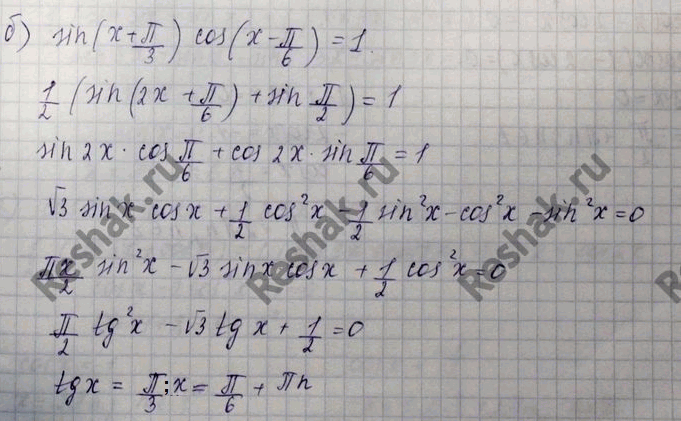 б) sin(x+π/3) cos(x-π/6)=1.
1/2 (sin(2x+π/6)+sin π/2)=1
sin 2x · cos π/6 + cos 2x · sin π/6 = 1
√3 sin x cos x + 1/2 cos²x - 1/2 sin²x - cos²x - sin²x = 0
πx/2 sin²x - √3 sin x cos x + 1/2 cos²x = 0
π/2 tg²x - √3 tg x + 1/2 = 0
tg x = π/3; x = π/6 + πn
Reshak.ru
Reshak.ru
Reshak.ru